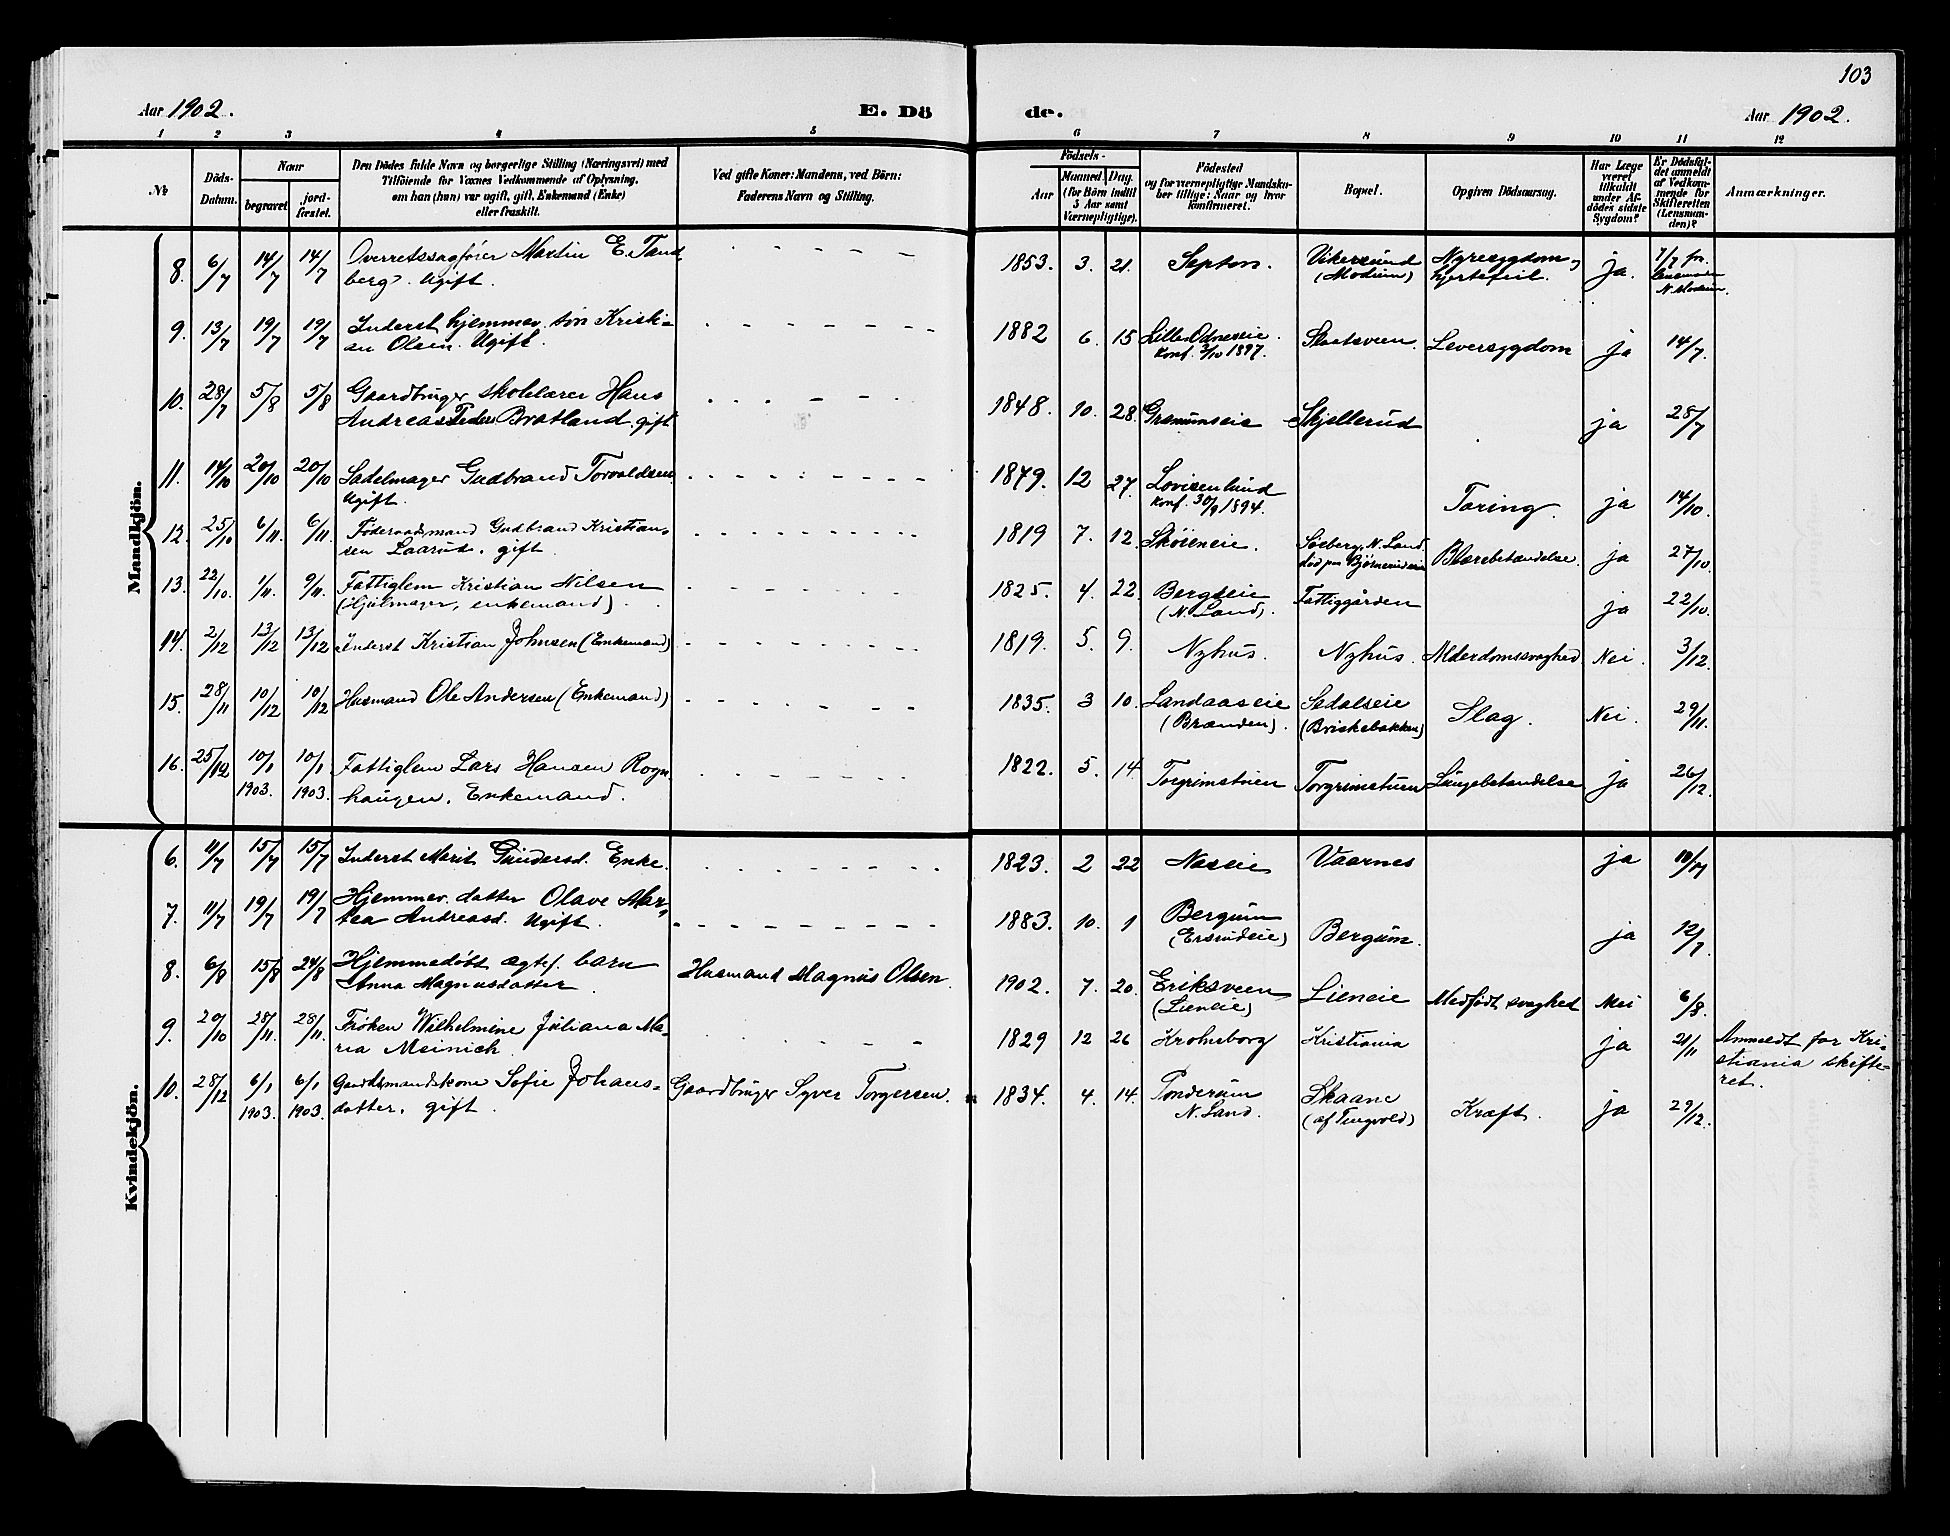 103
Aar 1902.
E. Dö
de.
Aar 1902.
1 2 3 4 5 6 7 8 9 10 11 12
№
Döds-
Datum.
Naar
begravet
jord-
fæstet.
Den Dödes fulde Navn og borgerlige Stilling (Næringsvei) med
Tilföiende for Voxnes Vedkommende af Oplysning,
om han (hun) var ugift, gift, Enkemand (Enke)
eller fraskilt.
Ved gifte Koner: Mandens, ved Börn:
Faderens Navn og Stilling.
Födsels-
Aar
Maaned. Dag.
(for Börn indtil
5 Aar samt
Værnepligtige).
Födested
og for værnepligtige Mandska-
ber tillige: Naar og hvor
konfirmeret.
Bopæl.
Opgiven Dödsaarsag.
Har Læge
været
tilkaldt
under Af-
dödes sidste
Sygdom?
Er Dödsfal-
det anmeldt
af Vedkom-
mende for
Skifteretten
(Lensman-
den)?
Anmærkninger.
Mandkjön.
8. 6/7 14/7 14/7 Overretssagfører Martin E. Tand-
berg. Ugift.
1853. 3. 21. Septon. Vikersund
(Modum) Nyresygdom,
hjertefeil. ja. 7/7 for
lensmanden
N. Modum.
9. 13/7 19/7 19/7 Inderst hjemmev. søn Kristi-
an Olsen. Ugift.
1882 6. 15 Lille Odneseie.
Konf. 3/10 1897. Skartsveen. Leversygdom ja 14/7.
10. 28/7 5/8 5/8 Gaardbruger skolelærer Hans
Andreas Peders. Bratland. gift
1848. 10. 28. Gramumseie Skjellerud ja 28/7
11. 14/10 20/10 20/10 Sadelmager Gudbrand Torvaldsen
Ugift.
1879. 12 27. Lovisenlund
Konf. 30/9 1894. Tæring. ja 14/10.
12. 25/10 6/11. 6/11. Føderaadsmand Gudbrand Kristian-
sen Laarud. gift.
1819 7. 12. Skøieneie. Søeberg, N. Land.
død paa Bjørnerudeie Blærebetændelse. ja 27/10.
13. 22/10. 1/11. 9/11. Fattiglem Kristian Nilsen
(Hjulmager, enkemand).
1825. 4. 22. Bergseie
(N. Land). Fattiggården ja 22/10.
14. 2/12 13/12 13/12 Inderst Kristian Johnsen (Enkemand)
1819. 5. 9. Nyhus. Nyhus. Alderdomssvaghed Nei. 3/12.
15. 28/11 10/12 10/12 Husmand Ole Andersen (Enkemand)
1835. 3 10. Landaaseie
(Brænden). Sedalseie
(Briskebakken) Slag. Nei. 29/11.
16. 25/12 10/1 1903. 10/1 1903. Fattiglem Lars Hansen Rogn-
haugen. Enkemand.
1822. 5. 14 Torgrimstuen Torgrimstuen Lungebetændelse ja 26/12.
Kvindekjön.
6. 11/7 15/7 15/7 Inderst Marit Gundersd. Enke.
1823. 2 22 Næseie Vaarnes ja
7. 11/7 19/7 19/7 Hjemmev. datter Olave Mar-
tea Andreasd. Ugift.
1883. 10. 1 Bergum
(Ersrudeie) Bergum. ja 12/7
8. 6/8 15/8 24/8 Hjemmedøbt ægtef. barn
Anna Magnusdatter. Husmand Magnus Olsen
1902. 7. 20. Eriksveen
(Lieneie) Lieneie Medfødt svaghed Nei 6/8.
9. 20/10 28/11. 28/11. Frøken Wilhelmine Juliana Ma-
ria Meinich.
1829 12 26 Krohnsborg Kristiania ja 21/11 Anmeldt for Kri-
stiania skifte-
ret.
10. 28/12 6/1 1903. 6/1 1903. Gaardmandskone Sofie Johans-
datter. gift. Gaardbruger Syver Torgersen.
1834. 4. 14. Ponderum
N. Land. Skaane
(af Tingvold) Kræft. ja 29/12.